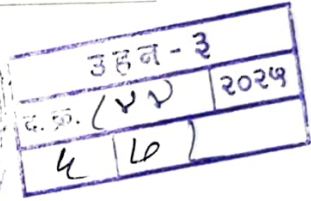 उहन - ३
द. क्र. (४४ २०२५
५ ७